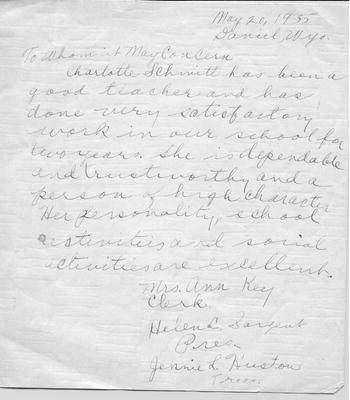 May 20, 1935
Daniel, Wyo.
To Whom it May Concern
Charlotte Schmitt has been a
good teacher and has
done very satisfactory
work in our school for
two years. She is dependable
and trustworthy and a
person of high character
Her personality, school
activities and social
activities are excellent.
Mrs. Ann Key
Clerk
Helen L. Sargent
Pres.
Jennie L. Huston
Treas.